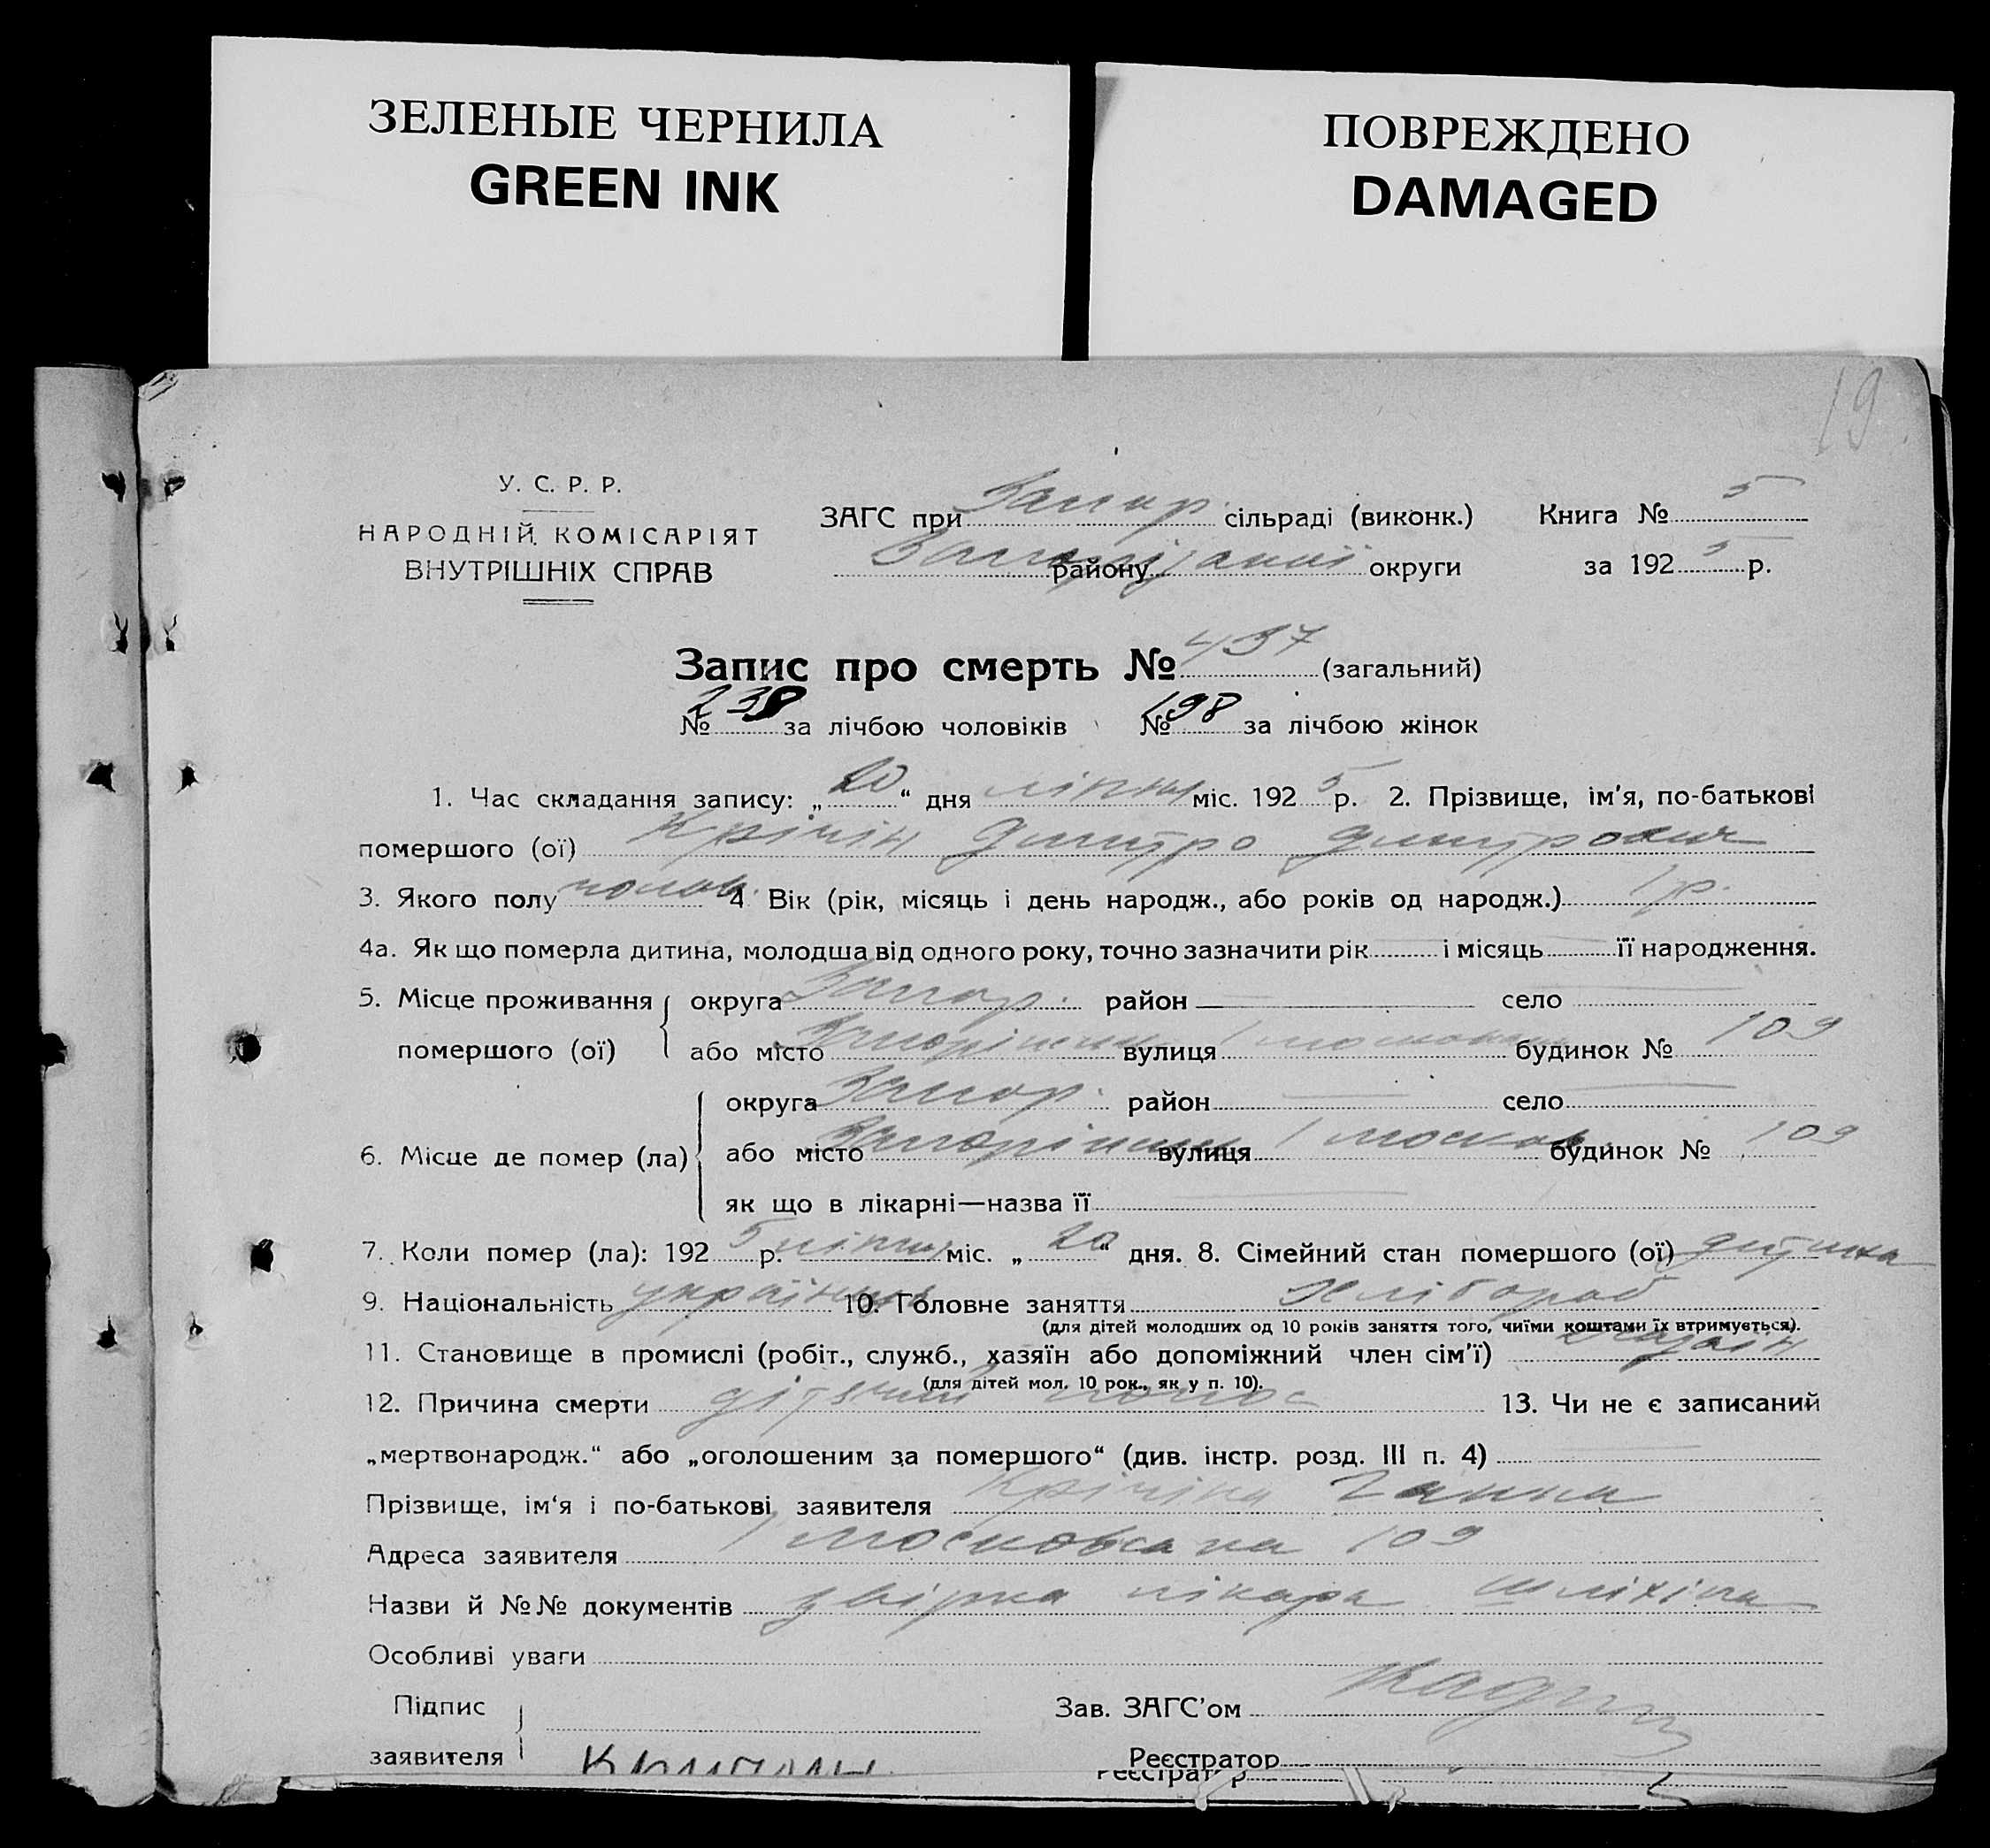 ЗЕЛЕНЫЕ ЧЕРНИЛА
GREEN INK
ПОВРЕЖДЕНО
DAMAGED
19
У. С. Р. Р.
НАРОДНІЙ КОМІСАРІЯТ
ВНУТРІШНІХ СПРАВ
ЗАГС при Запор. сільраді (виконк.) Книга № 5
району округи за 1925 р.
Запис про смерть № 437 (загальний)
№ 238 за лічбою чоловіків № 198 за лічбою жінок
1. Час складання запису: „20“ дня липня міс. 1925 р. 2. Прізвище, ім'я, по-батькові
помершого (ої) Крічін Дмитро Дмитрович
3. Якого полу чолов. 4 Вік (рік, місяць і день народж., або років од народж.) 1 р.
4а. Як що померла дитина, молодша від одного року, точно зазначити рік і місяць її народження.
5. Місце проживання округа Запор. район село
помершого (ої) або місто вулиця 1 будинок № 109
округа Запор. район село
6. Місце де помер (ла) або місто вулиця 1 москов будинок № 109
як що в лікарні—назва її
7. Коли помер (ла): 1925 р. липня міс. „20“ дня. 8. Сімейний стан помершого (ої) дитина
9. Національність українець 10. Головне заняття хлібороб
(для дітей молодших од 10 років заняття того, чиїми коштами їх втримується).
11. Становище в промислі (робіт., служб., хазяїн або допоміжний член сім'ї) хазяїн
(для дітей мол. 10 рок., як у п. 10).
12. Причина смерти дітячий понос 13. Чи не є записаний
„мертвонародж.“ або „оголошеним за помершого“ (див. інстр. розд. III п. 4)
Прізвище, ім'я і по-батькові заявителя Крічіна Ганна
Адреса заявителя 1 московська 109
Назви й №№ документів лікаря
Особливі уваги
Підпис
заявителя
Зав. ЗАГС'ом
Реєстратор
Реєстратор